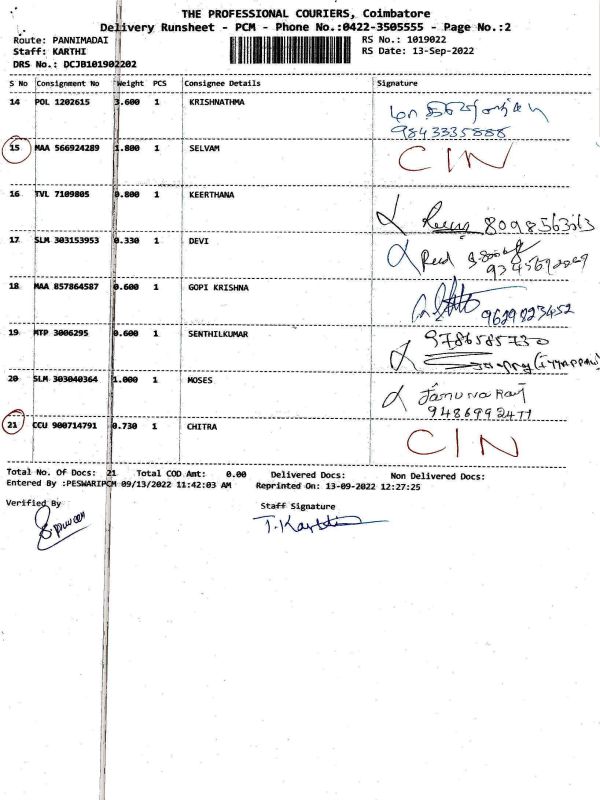 THE PROFESSIONAL COURIERS, Coimbatore
Delivery Runsheet - PCM - Phone No.:0422-3505555 - Page No.:2
Route: PANNIMADAI RS No.: 1019022
Staff: KARTHI RS Date: 13-Sep-2022
DRS No.: DCJB101902202
S No Consignment No Weight PCS Consignee Details Signature
14 POL 1202615 3.600 1 KRISHNATHMA
9843335888
15 MAA 566924289 1.800 1 SELVAM CIN
16 TVL 7109805 0.800 1 KEERTHANA
17 SLM 303153953 0.330 1 DEVI
18 MAA 857864587 0.600 1 GOPI KRISHNA
9629823452
19 MTP 3006295 0.600 1 SENTHILKUMAR 9786585730
20 SLM 303040364 1.000 1 MOSES
9486992477
21 CCU 900714791 0.730 1 CHITRA CIN
Total No. Of Docs: 21 Total COD Amt: 0.00 Delivered Docs: Non Delivered Docs:
Entered By :PESWARIPCM 09/13/2022 11:42:03 AM Reprinted On: 13-09-2022 12:27:25
Verified By Staff Signature